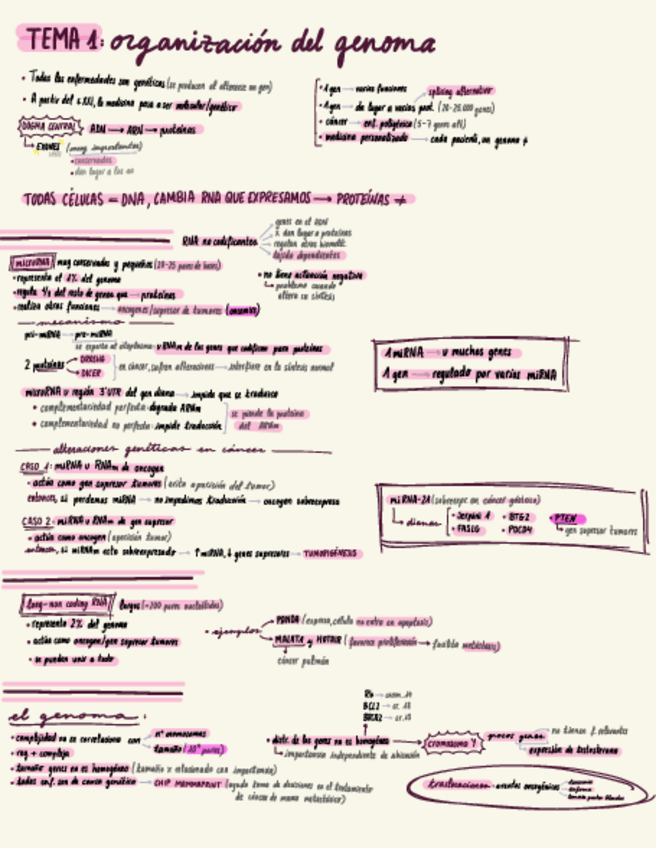 TEMA 1: organización del genoma
• Todas las enfermedades son genéticas (se producen al alterarse un gen)
• A partir del s.XXI, la medicina pasa a ser molecular/genética
DOGMA CENTRAL ADN → ARN → proteínas
↳ EXONES (muy importantes)
• conservados
• dan lugar a los aa
• 1 gen → varias funciones splicing alternativo
• 1 gen → da lugar a varias prot. (20-25.000 genes)
• cáncer → enf. poligénica (5-7 genes alt)
• medicina personalizada → cada paciente, un genoma ≠
TODAS CÉLULAS = DNA, CAMBIA RNA QUE EXPRESAMOS → PROTEÍNAS ≠
RNA no codificantes
genes en el ADN
X dan lugar a proteínas
regulan otras biomoléc.
tejido dependientes
• no tiene actuación negativa
↳ problema cuando
altera su síntesis
microRNA muy conservados y pequeños (18-25 pares de bases)
• representa el 1% del genoma
• regula 1/3 del resto de genes que → proteínas
• realiza otras funciones → oncogenes/supresor de tumores (oncomirs)
mecanismo
pri-miRNA → pre-miRNA
se exporta al citoplasma
2 proteínas DROSHA
DICER
en cáncer, sufren alteraciones → interfiere en la síntesis normal
microRNA u región 3'UTR del gen diana → impide que se traduzca
• complementariedad perfecta: degrada ARNm
• complementariedad no perfecta: impide traducción
se pierde la proteína
del ARNm
1 miRNA → u muchos genes
1 gen → regulado por varios miRNA
alteraciones genéticas en cáncer
CASO 1: miRNA u RNAm de oncogen
• actúa como gen supresor tumores (evita aparición del tumor)
entonces, si perdemos miRNA → no impedimos traducción → oncogen sobreexpresa
CASO 2: miRNA u RNAm de gen supresor
• actúa como oncogen (aparición tumor)
entonces, si miRNAm esta sobreexpresado → ↑miRNA, ↓ genes supresores → TUMORIGÉNESIS
miRNA-21 (sobreexpr. en cáncer gástrico)
↳ dianas • Serpini 1 • BTG2 • PTEN
• FASLG • PDCD4 ↳ gen supresor tumores
long-non coding RNA largos (>200 pares nucleótidos)
• representa 2% del genoma
• actúa como oncogen/gen supresor tumores
• se pueden unir a todo
• ejemplos PANDA (expresa, célula no entra en apoptosis)
MALAT1 y HOTAIR (favorece proliferación → facilita metástasis)
cáncer pulmón
el genoma:
• complejidad no se correlaciona con nº cromosomas
tamaño (10⁹ pares)
• tamaño genes no es homogéneo (tamaño x relacionado con importancia)
• todas enf. son de causa genética → CHIP MAMMAPRINT (ayuda toma de decisiones en el tratamiento
de cáncer de mama metastásico)
Rb → crom. 13
BCL2 → cr. 18
BRCA2 → cr. 13
• distr. de los genes no es homogénea
↳ importancia independiente de ubicación
CROMOSOMA Y pocos genes no tienen f. relevantes
expresión de testosterona
traslocaciones → eventos oncogénicos